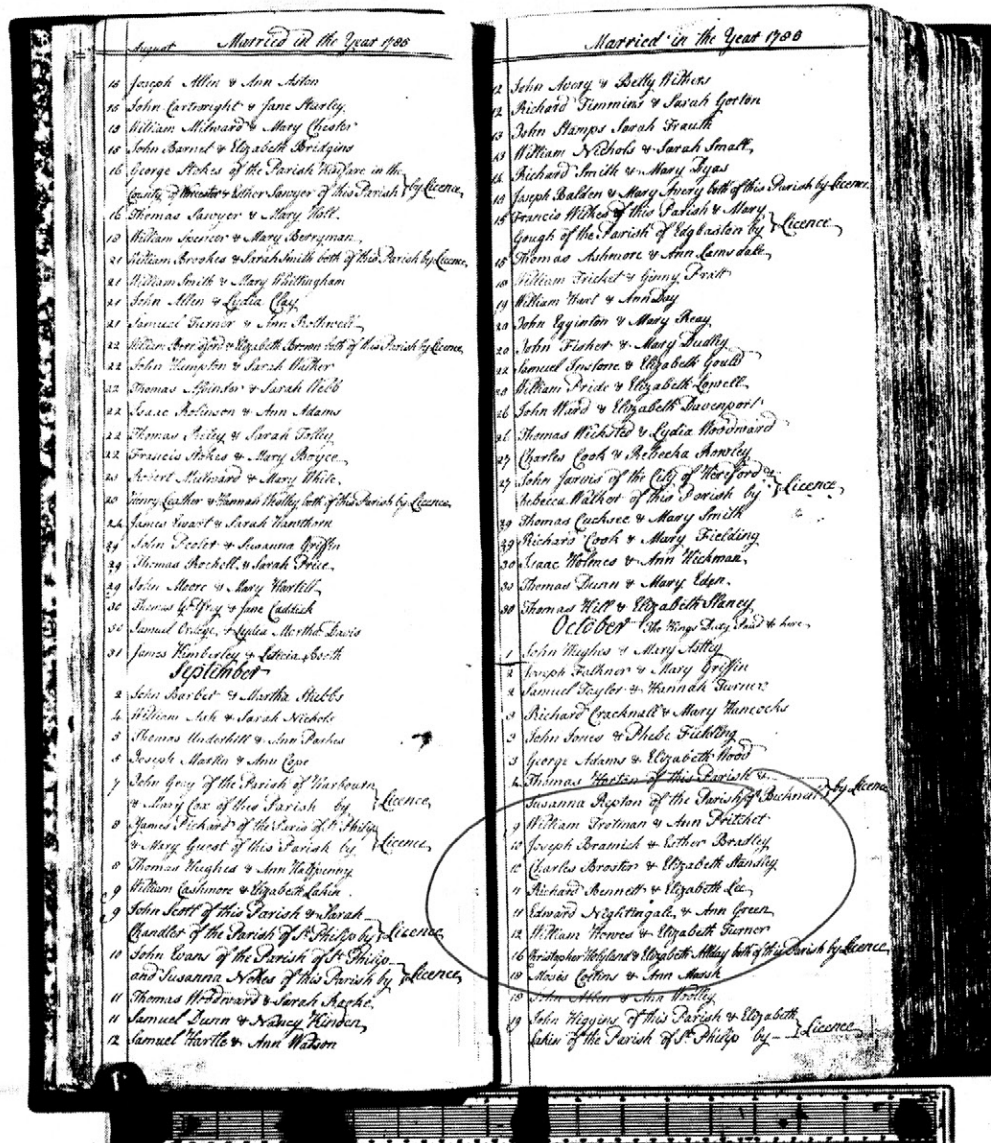 August Married in the Year 1788
15 Joseph Allen & Ann Aston
15 John Cartwright & Jane Starley
15 William Milward & Mary Chester
15 John Barnet & Elizabeth Bridgins
16 George Stokes of the Parish in the
County of Worcester & Esther Sawyer of this Parish } by Licence
16 Thomas Sawyer & Mary Hall
18 William Spencer & Mary Berryman
21 William Brookes & Sarah Smith both of this Parish by Licence
21 William Smith & Mary Whittingham
21 John Allen & Lydia Clay
21 Samuel Turner & Ann Rothwell
22 William & Elizabeth Brown both of this Parish by Licence
22 John Humpton & Sarah Walker
22 Thomas & Sarah Webb
22 Isaac Robinson & Ann Adams
22 Thomas & Sarah Tolley
22 Francis Stokes & Mary Boyce
23 Robert Milward & Mary White
23 Henry Leather & Hannah both of this Parish by Licence
24 James Ewart & Sarah Hawthorn
29 John & Susanna Griffin
29 Thomas Rochell & Sarah Price
29 John Moore & Mary Hartill
30 Thomas & Jane Caddick
30 Samuel & Lydia Martha Davis
31 James Kimberley & Leticia Booth
September
2 John Barber & Martha Stubbs
4 William Ash & Sarah Nichols
5 Thomas Underhill & Ann Parkes
5 Joseph Martin & Ann Cope
7 John Gray of the Parish of Harbourn
& Mary Cox of this Parish by } Licence
8 James Pickard of the Paris of St Philip
& Mary Guest of this Parish by } Licence
8 Thomas Hughes & Ann Halfpenny
9 William Cashmore & Elizabeth Lakin
9 John Scott of this Parish & Sarah
Chandler of the Parish of St Philip by } Licence
10 John Evans of the Parish of St Philip
and Susanna Nokes of this Parish by } Licence
11 Thomas Woodward & Sarah
11 Samuel Dunn & Nancy Hinden
12 Samuel Hartle & Ann Watson
Married in the Year 1788
12 John Avery & Betty Withers
12 Richard Timmins & Sarah Gorton
13 John Stamps Sarah Frauth
13 William Nichols & Sarah Small
14 Richard Smith & Mary Dyas
15 Joseph Balden & Mary Avery both of this Parish by Licence
15 Francis Wilkes of this Parish & Mary
Gough of the Parish of Edgbaston by } Licence
15 Thomas Ashmore & Ann Lamsdale
18 William Fricket & Ginny Pratt
19 William Hart & Ann Day
20 John Egginton & Mary Reay
20 John Fisher & Mary Dudley
22 Samuel Instone & Elizabeth Gould
William Pride & Elizabeth Lowell
26 John Ward & Elizabeth Davenport
26 Thomas Wicksted & Lydia Woodward
27 Charles Cook & Rebecka Rowley
27 John Jarvis of the City of Hereford &
Rebecca Walker of this Parish by } Licence
29 Thomas Cucksee & Mary Smith
29 Richard Cook & Mary Fielding
30 Isaac Holmes & Ann Wickman
30 Thomas Dunn & Mary Eden
30 Thomas Hill & Elizabeth Slaney
October The Kings Duty Paid to here
1 John Hughes & Mary Astley
2 Joseph Falkner & Mary Griffin
2 Samuel Taylor & Hannah Turner
3 Richard Cracknall & Mary Hancocks
3 John Jones & Phebe Fickling
3 George Adams & Elizabeth Wood
4 Thomas of this Parish &
Susanna Ripton of the Parish of } by Licence
9 William Trotman & Ann Pritchet
10 Joseph Bramich & Esther Bradley
10 Charles Broster & Elizabeth Standley
11 Richard Bennett & Elizabeth Lee
11 Edward Nightingale & Ann Green
12 William Howes & Elizabeth Turner
16 Christopher & Elizabeth Allday both of this Parish by Licence
18 Moses Collins & Ann Marsh
18 John Allen & Ann Woolley
19 John Higgins of this Parish & Elizabeth
Lakin of the Parish of St Philip by } Licence